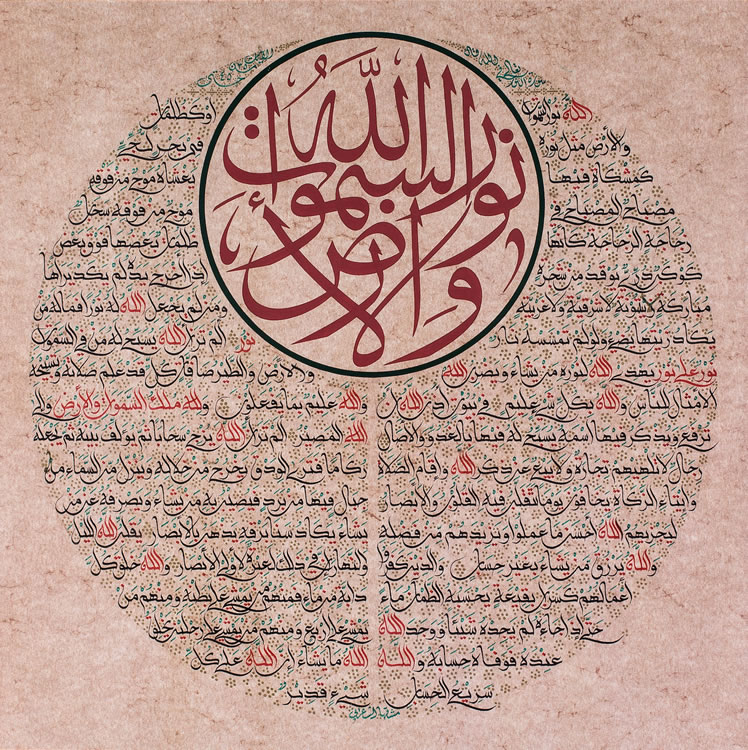 الله نور السموات والأرض
الله نور السموات
والأرض مثل نوره
كمشكاة فيها
مصباح المصباح في
زجاجة الزجاجة كأنها
كوكب دري يوقد من شجرة
مباركة زيتونة لا شرقية ولا غربية
يكاد زيتها يضيء ولو لم تمسسه نار
نور على نور يهدي الله لنوره من يشاء ويضرب الله
الأمثال للناس والله بكل شيء عليم في بيوت أذن الله أن
ترفع ويذكر فيها اسمه يسبح له فيها بالغدو والآصال
رجال لا تلهيهم تجارة ولا بيع عن ذكر الله وإقام الصلاة
وإيتاء الزكاة يخافون يوما تتقلب فيه القلوب والأبصار
ليجزيهم الله أحسن ما عملوا ويزيدهم من فضله
والله يرزق من يشاء بغير حساب والذين كفروا
أعمالهم كسراب بقيعة يحسبه الظمآن ماء
حتى إذا جاءه لم يجده شيئا ووجد الله
عنده فوفاه حسابه والله
سريع الحساب
أو كظلمات
في بحر لجي
يغشاه موج من فوقه
موج من فوقه سحاب
ظلمات بعضها فوق بعض
إذا أخرج يده لم يكد يراها
ومن لم يجعل الله له نورا فما له من
نور ألم تر أن الله يسبح له من في السموات
والأرض والطير صافات كل قد علم صلاته وتسبيحه
والله عليم بما يفعلون ولله ملك السموات والأرض وإلى
الله المصير ألم تر أن الله يزجي سحابا ثم يؤلف بينه ثم يجعله
ركاما فترى الودق يخرج من خلاله وينزل من السماء من
جبال فيها من برد فيصيب به من يشاء ويصرفه عن من
يشاء يكاد سنا برقه يذهب بالأبصار يقلب الله الليل
والنهار إن في ذلك لعبرة لأولي الأبصار والله خلق كل
دابة من ماء فمنهم من يمشي على بطنه ومنهم من
يمشي على أربع ومنهم من يمشي على رجلين يخلق
الله ما يشاء إن الله على كل
شيء قدير